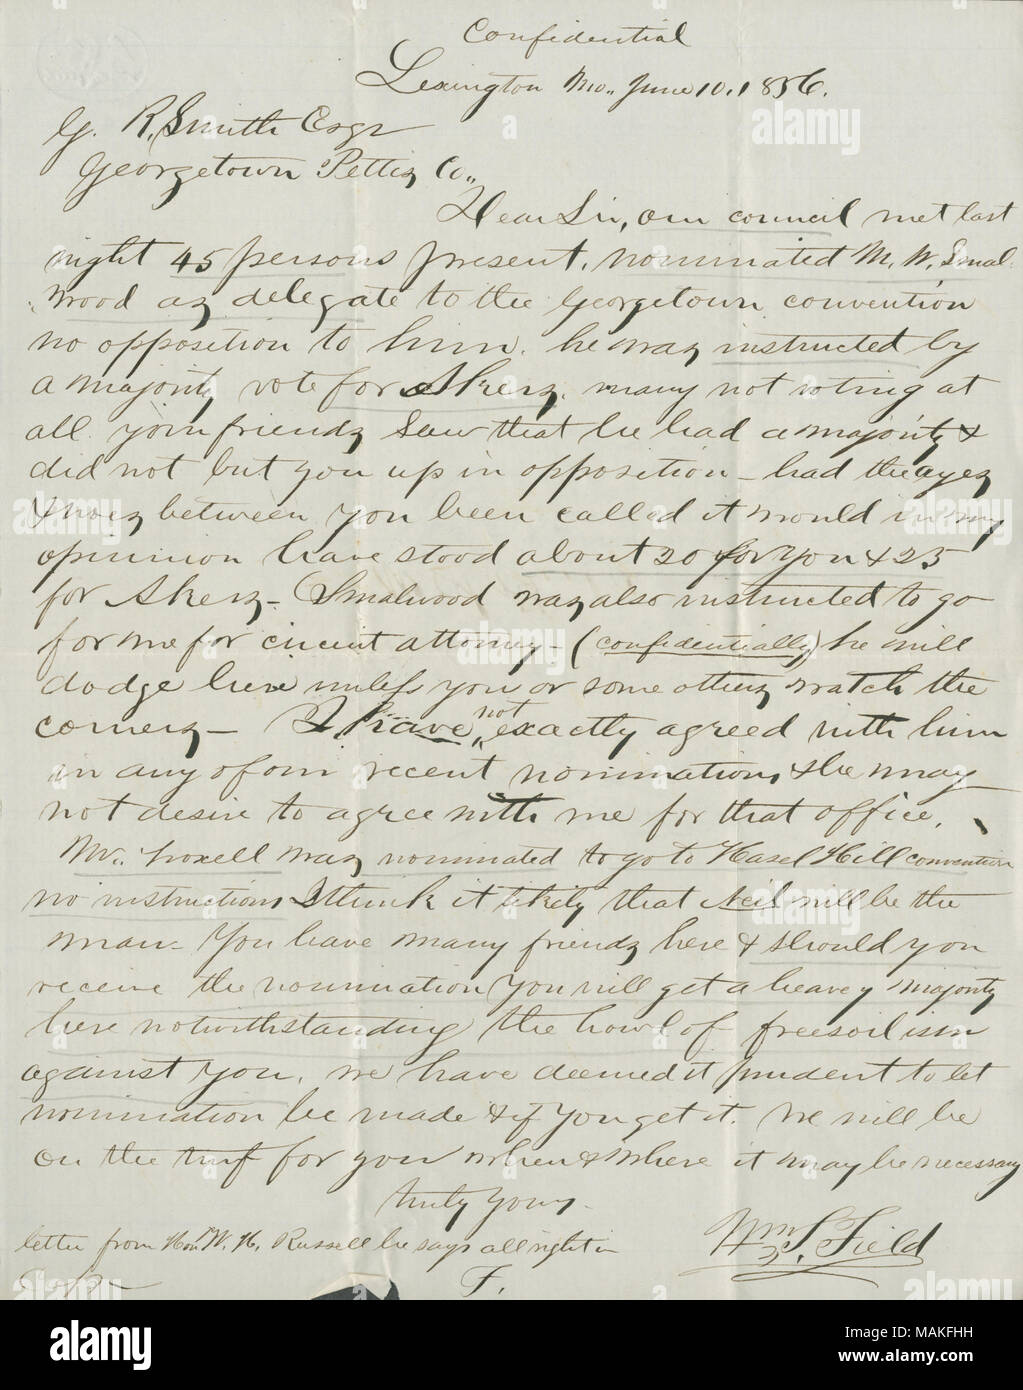 Confidential
Lexington Mo., June 10, 1856.
G. R. Smith Esqr
Georgetown Pettis Co.,
Dear Sir, our council met last
night 45 persons present, nominated M. W. Smal-
wood as delegate to the Georgetown convention
no opposition to him. he was instructed by
a majority vote for Akers, many not voting at
all. your friends saw that he had a majority &
did not put you up in opposition - had the ayes
& noes between you been called it would in my
opinnion have stood about 20 for you & 25
for Akers - Smalwood was also instructed to go
for me for circuit attorney - (confidentially) he will
dodge here unless you or some others watch the
corners - I have not exactly agreed with him
in any of our recent nominations & he may
not desire to agree with me for that office.
Mr. Troxell was nominated to go to Hasel Hill convention
no instructions I think it likely that Neil will be the
man - You have many friends here & should you
receive the nomination you will get a heavey majority
here notwithstanding the howl of freesoilism
against you. we have deemed it prudent to let
nomination be made & if you get it. we will be
on the turf for you when & where it may be necessary
truly yours.
Wm S. Field
letter from Hon. W. H. Russell he says all right in
F.
alamy
Image ID: MAKFHH
www.alamy.com